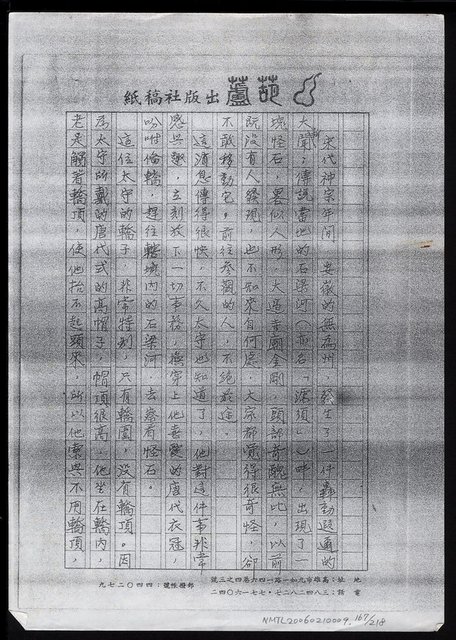 葫蘆出版社稿紙
宋代神宗年間,安徽的無為州,發生了一件轟動遐邇的
大新聞;傳說當地的石梁河(古名「濡須」)畔,出現了一
塊怪石,略似人形,大過寺廟金剛,頭部奇醜無比,以前
既沒有人發現,也不知來自何處,大家都覺得很奇怪,卻
不敢移動它。前往參觀的人,不絕於途。
這消息傳得很快,不久太守也知道了,他對這件事非常
感興趣,立刻放下一切事務,穿上他喜愛的唐代衣冠,
吩咐備轎,趕往轄境內的石梁河,去察看怪石。
這位太守的轎子,非常特別,只有轎圍,沒有轎頂。因
為太守所戴的唐代式的高帽子,帽頂很高,他坐在轎內,
老是觸著轎頂,使他抬不起頭來,所以他索興不用轎頂,
地址:高雄市九如一路一四六巷四之三號
電話:三八四二八二七·七七一六〇四二
郵撥帳號:四四〇二七九
NMTL20060210009.167/218